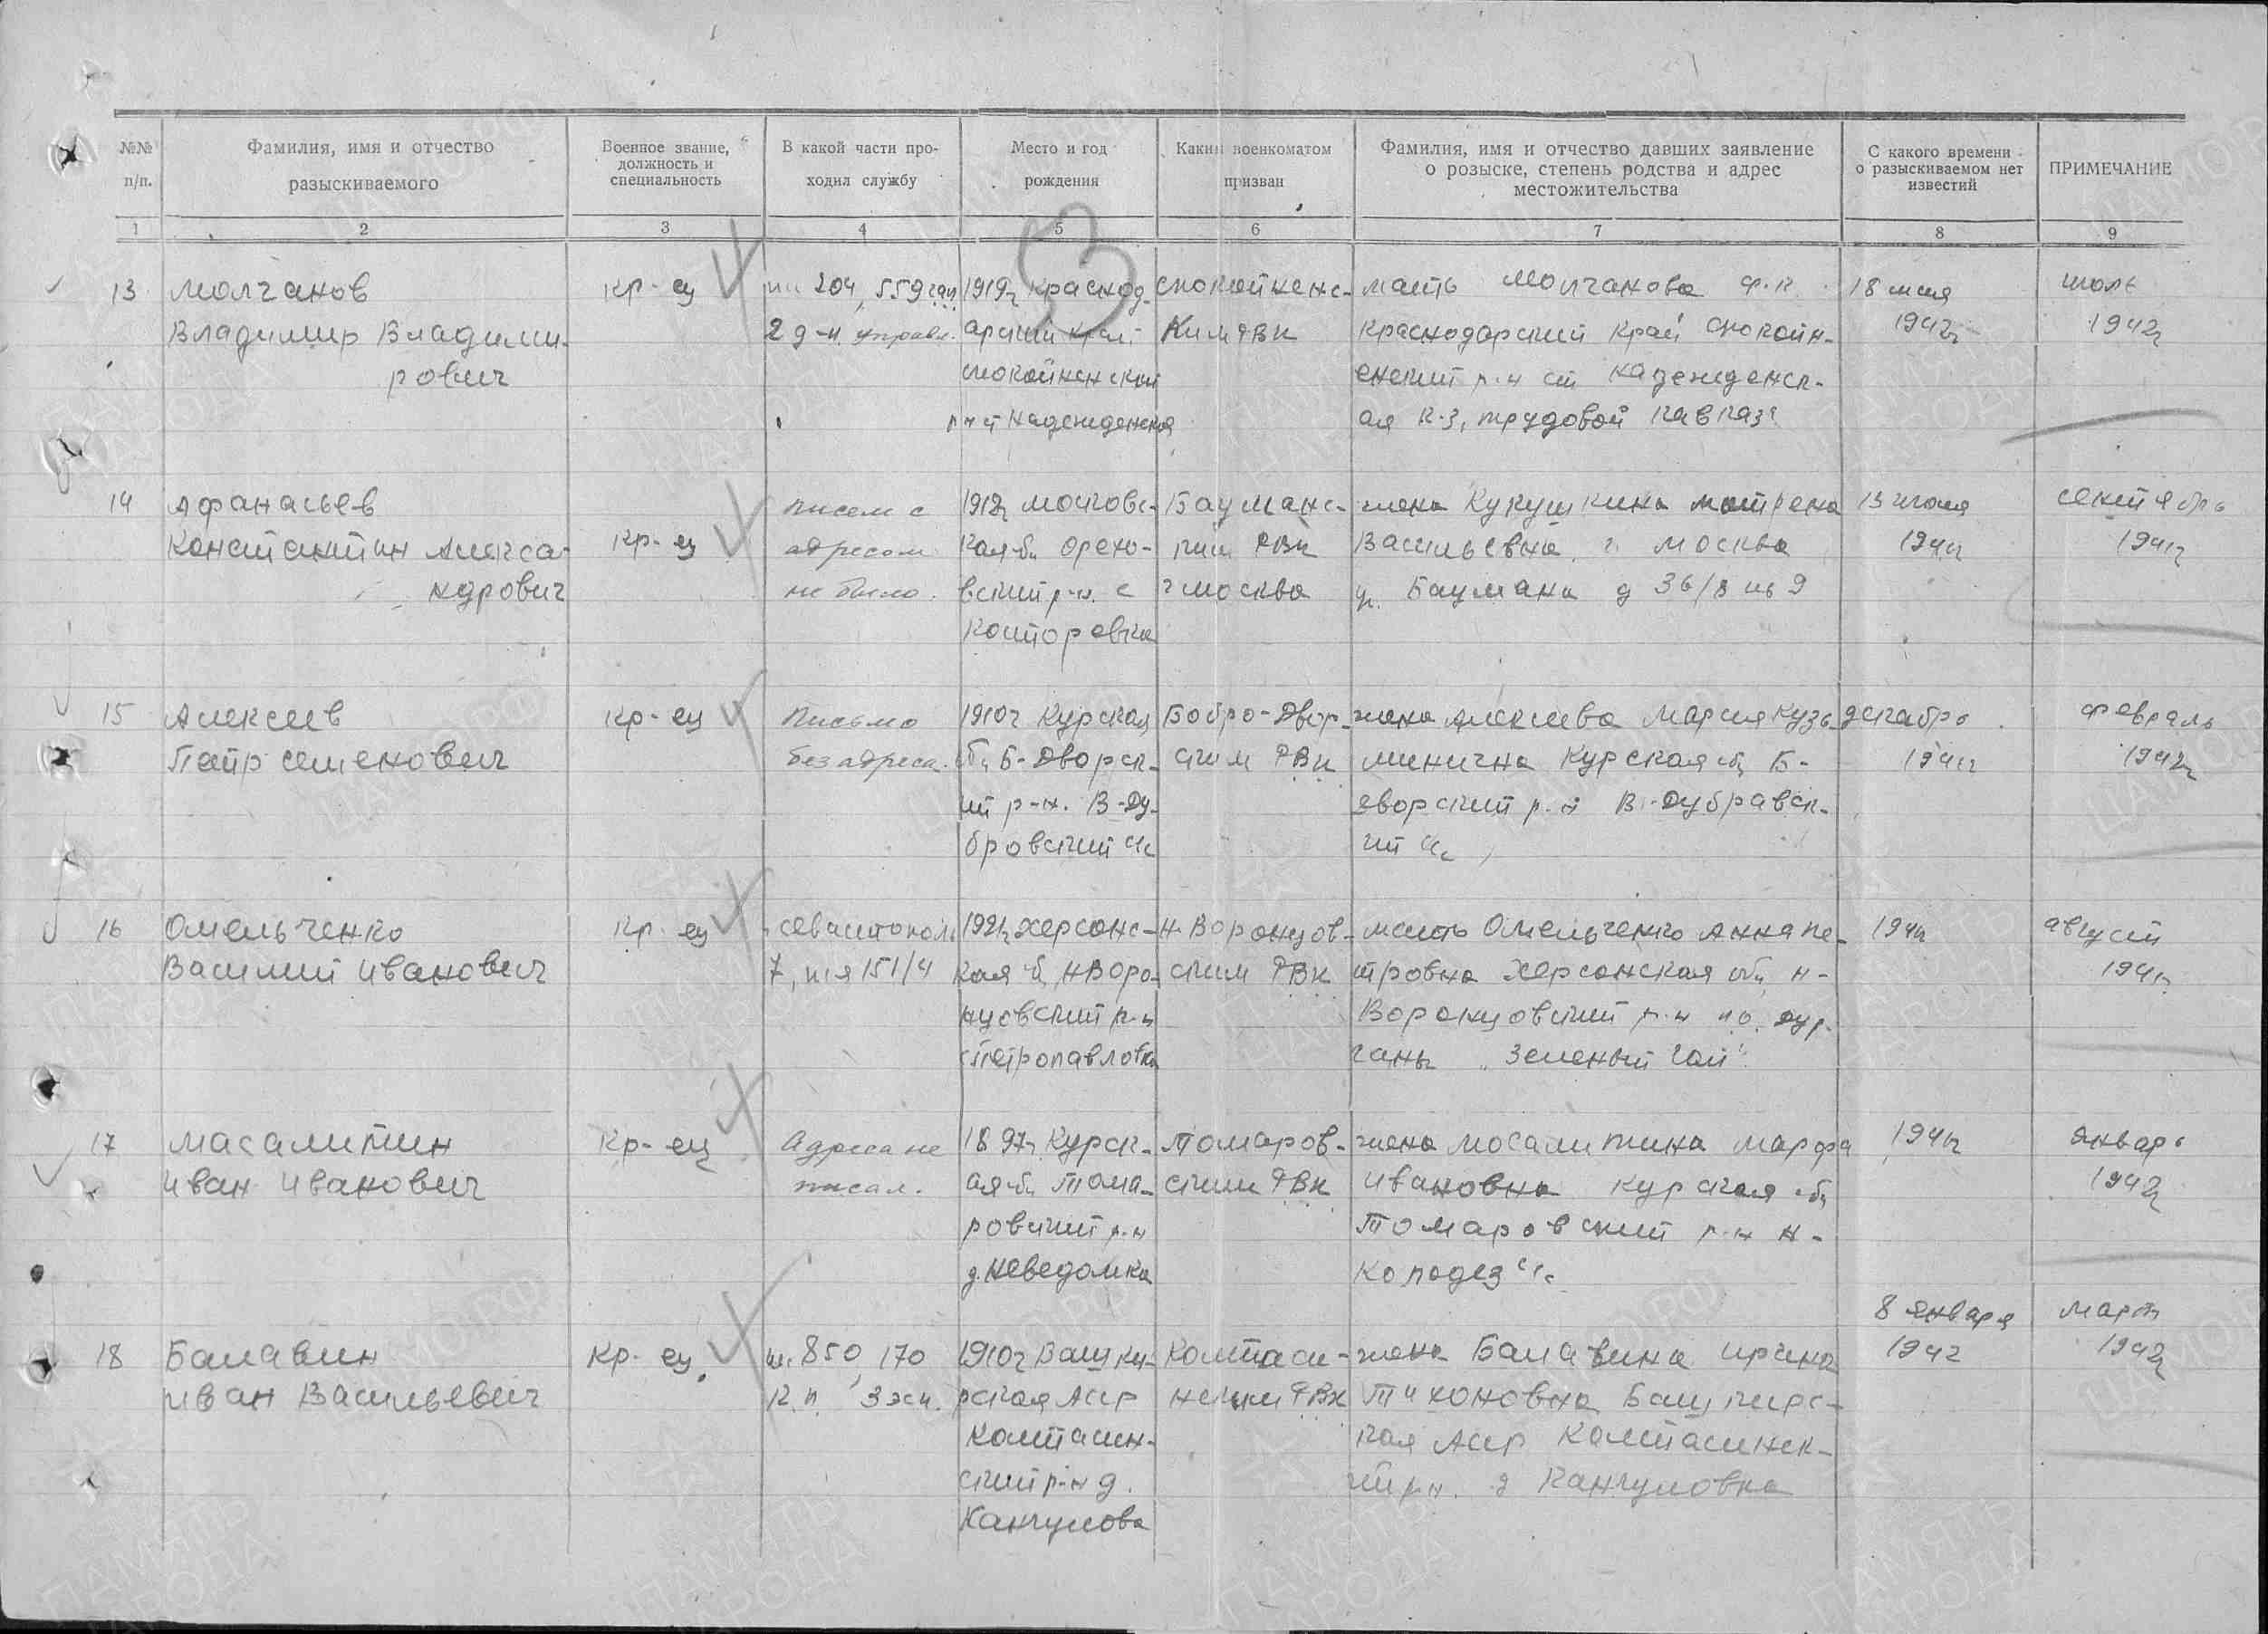 №№ п/п.
Фамилия, имя и отчество разыскиваемого
Военное звание, должность и специальность
В какой части проходил службу
Место и год рождения
Каким военкоматом призван
Фамилия, имя и отчество давших заявление о розыске, степень родства и адрес местожительства
С какого времени о разыскиваемом нет известий
ПРИМЕЧАНИЕ
1 2 3 4 5 6 7 8 9
13
Молчанов
Владимир Владими-
рович
кр-ец
204, 559
2 д-н
1919г Краснод-
арский край
спокойненский
р-н Надежденская
спокойненс-
ким РВК
мать Молчанова
Краснодарский край спокойн-
енский р-н ст Надежденск-
ая к-з, трудовой Кавказ
18 мая
1942г
июль
1942г
14
Афанасьев
Константин Алекса-
ндрович
кр-ец
писем с
адресом
не было.
1912г Московс-
кая об. Орехо-
вский р-н. с
Бауманс-
ким РВК
г Москва
жена Кукушкина Матрена
Васильевна г. Москва
ул. Баумана д 36/8 кв 9
13 июля
1941г
сентябрь
1941г
15
Алексеев
Петр Семенович
кр-ец
Письмо
без адреса.
1910г Курская
об. Б-Дворск-
ий р-н. В-Ду-
бровский с/с
Бобро-Двор-
ским РВК
жена Алексеева Мария Кузь-
минична Курская об Б-
дворский р-н В-Дубравск-
ий с/с
декабрь
1941г
февраль
1942г
16
Омельченко
Василий Иванович
кр-ец
Севастополь
7, п/я 151/4
1921г Херсонс-
кая об, НВоро-
нцовский р-н
с Петропавловка
Н. Воронцов-
ским РВК
мать Омельченко Анна Пе-
тровна Херсонская об, Н-
Воронцовский р-н
"Зеленый Гай"
1941г
август
1941г
17
Масалитин
Иван Иванович
кр-ец
Адреса не
писал.
1897г Курск-
ая об. Тома-
ровский р-н
д. Неведомка
Томаров-
ским РВК
жена Мосалитина Марфа
Ивановна Курская об
Томаровский р-н Н-
Колодез с/с
1941г
январь
1942г
18
Балавин
Иван Васильевич
кр-ец
850, 170
1910г Башки-
рская Асср
Калтасин-
ский р-н д.
Калтаси-
нским РВК
жена Балавина Ирина
Тихоновна Башкирс-
кая Асср Калтасинск-
ий р-н. д
8 января
1942
март
1942г
ПАМЯТЬ НАРОДА
ПАМО.РФ